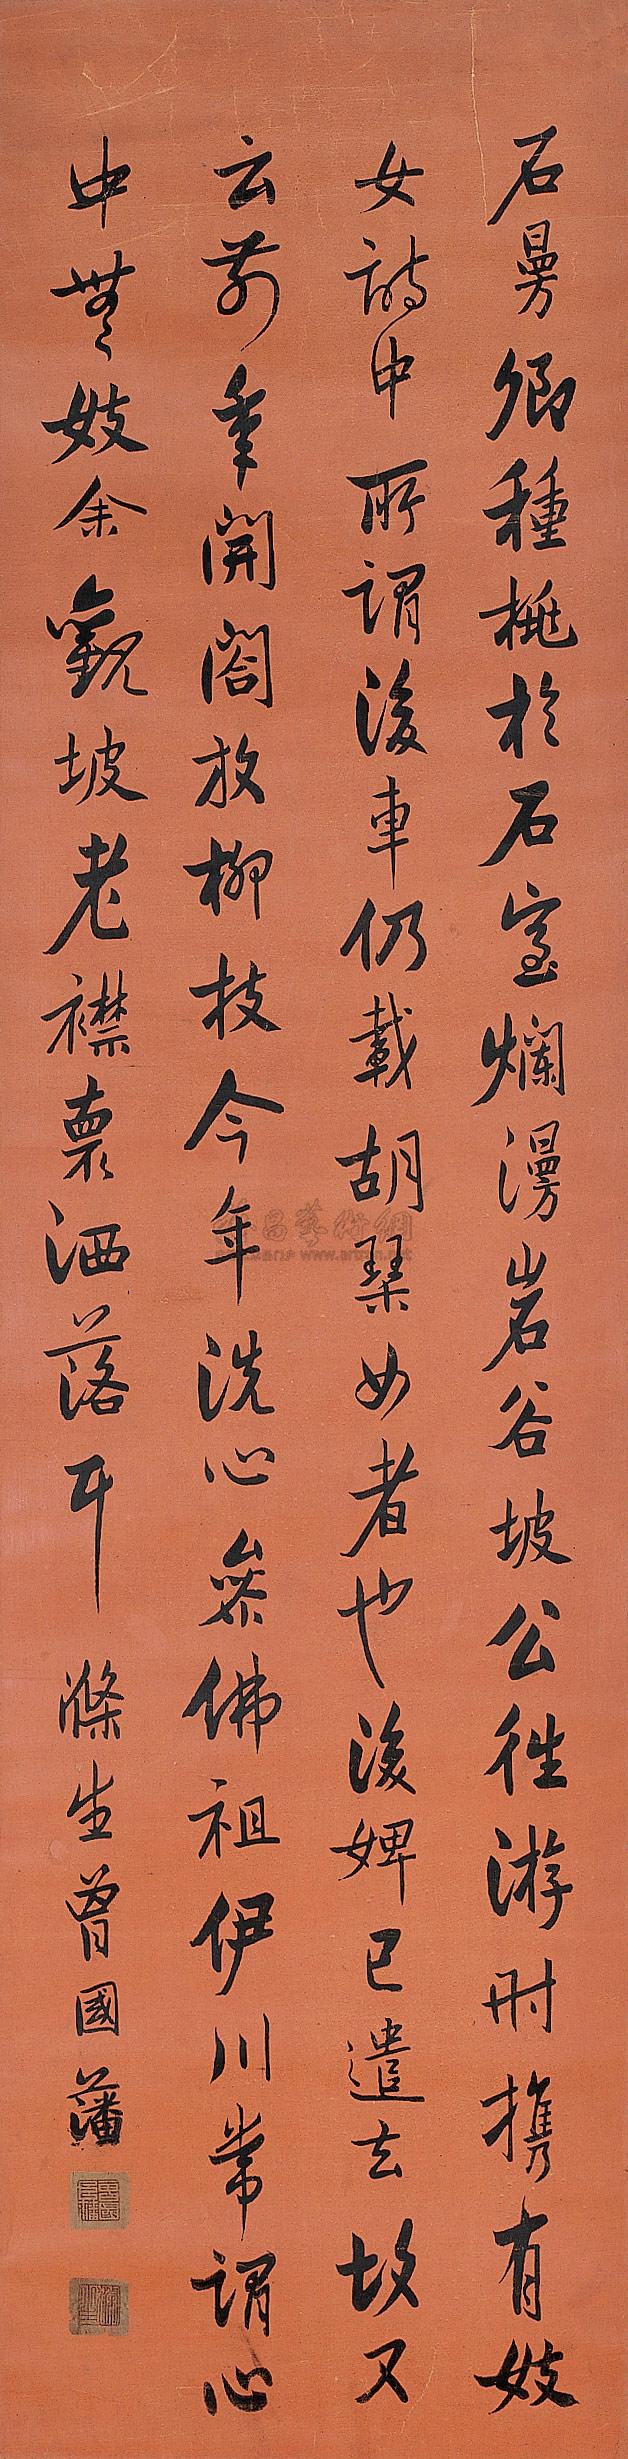 石曼卿種桃於石室爛漫岩谷坡公往游时携有妓
女詩中所謂後車仍載胡琴女者也後婢已遣去故又
云前年開閤放柳枝今年洗心參佛祖伊川常謂心
中無妓余觀坡老襟裏洒落耳
滌生曾國藩
www.artron.net